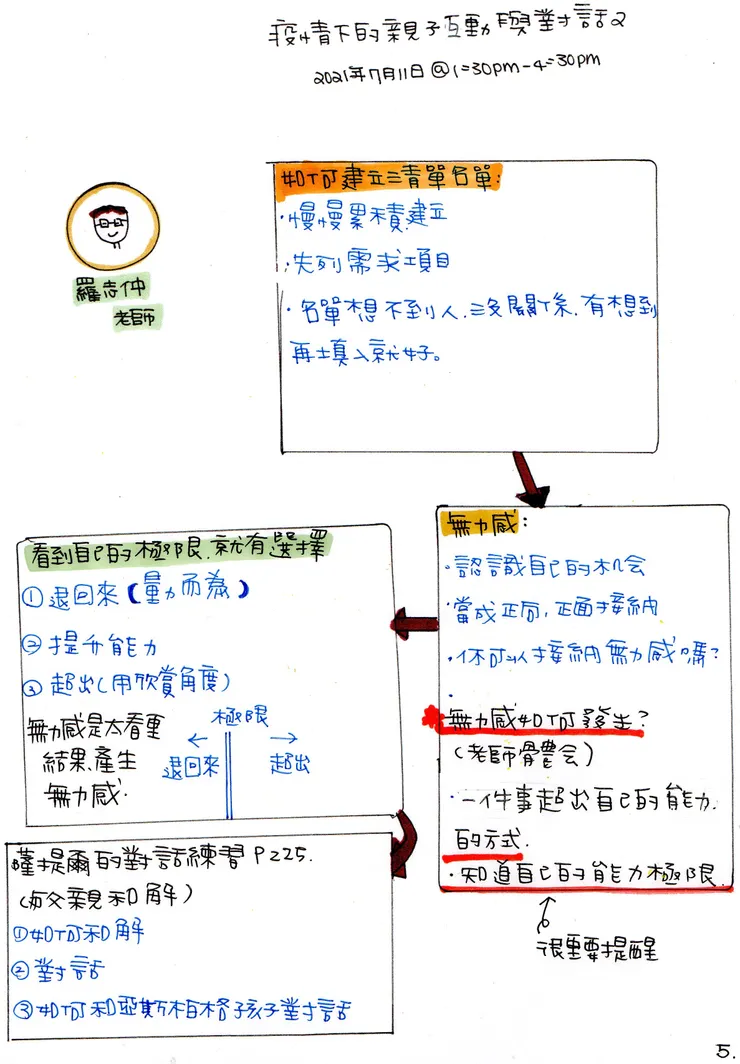 疫情下的親子互動與對話2
2021年7月11日@1=30pm-4=30pm
羅志仲
老師
如何建立清單名單:
·慢慢累積建立
·先列需求項目
·名單想不到人.沒關係.有想到
再填入就好。
無力感:
·認識自己的机会
·當成正向,正面接納
·你可以接納無力感嗎?
·
無力感如何發生?
(老師體会)
·一件事超出自己的能力
的方式.
·知道自己的能力極限.
很重要提醒
看到自己的極限.就有選擇
①退回來(量力而為)
②提升能力
③超出(用欣賞角度)
無力感是太看重
結果.產生
無力感.
極限
退回來
超出
薩提爾的對話練習P225.
(與父親和解)
①如何和解
②對話
③如何和亞斯柏格孩子對話
5.